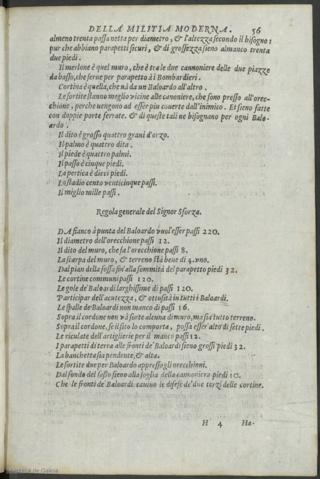 DELLA MILITIA MODERNA. 56
almeno trenta passa netta per diametro, & l'altezza secondo il bisogno;
pur che abbiano parapetti sicuri, & di grossezza sieno almanco trenta
due piedi.
Il merlone è quel muro, che è tra le due cannoniere delle due piazze
da basso, che serue per parapetto à i Bombardieri.
Cortina è quella, che và da un Baloardo all'altro.
Le sortite stanno meglio vicine alle canoniere, che sono presso all'orec-
chione, perche uengono ad esser più couerte dall'inimico. Et sieno fatte
con doppie porte ferrate. & di queste tali ne bisognono per ogni Balo-
ardo.
Il dito è grosso quattro grani d'orzo.
Il palmo è quattro dita.
Il piede è quattro palmi.
Il passo è cinque piedi.
La pertica è dieci piedi.
Lo stadio cento venticinque passi.
Il miglio mille passi.
Regola generale del Signor Sforza.
DA fianco à punta del Baloardo vuol esser passi 220.
Il diametro dell'orecchione passi 12.
Il dito del muro, che fa l'orecchione passi 8.
La scarpa del muro, & terreno stà bene di 4. vno.
Dal pian della fossa sin'alla sommità del parapetto piedi 32.
Le cortine communi passi 120.
Le gole de' Baloardi larghissime di passi 120.
Participar dell'acutezza, & ottusità in tutti i Baloardi.
Le spalle de Baloardi non manco di passi 16.
Sopra il cordone non và forte alcuna di muro, ma sia tutto terreno.
Sopra il cordone, se il sito lo comporta, possa esser alto di sette piedi.
Le riculate dell'artiglierie per il manco passi 12.
I parapetti di terra alle fronti de' Baloardi sieno grossi piedi 32.
La banchetta sia pendente, & alta.
Le sortite due per Baloardo appresso gli orecchioni.
Dal fondo del fosso sieno alla soglia della cannoniera piedi 10.
Che le fronti de Baloardi cauino le difese de' due terzi delle cortine.
H 4 Ha-